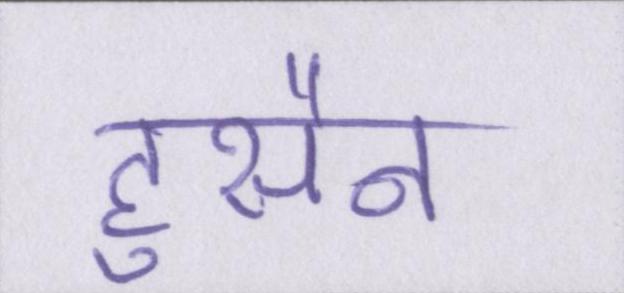 हुसैन